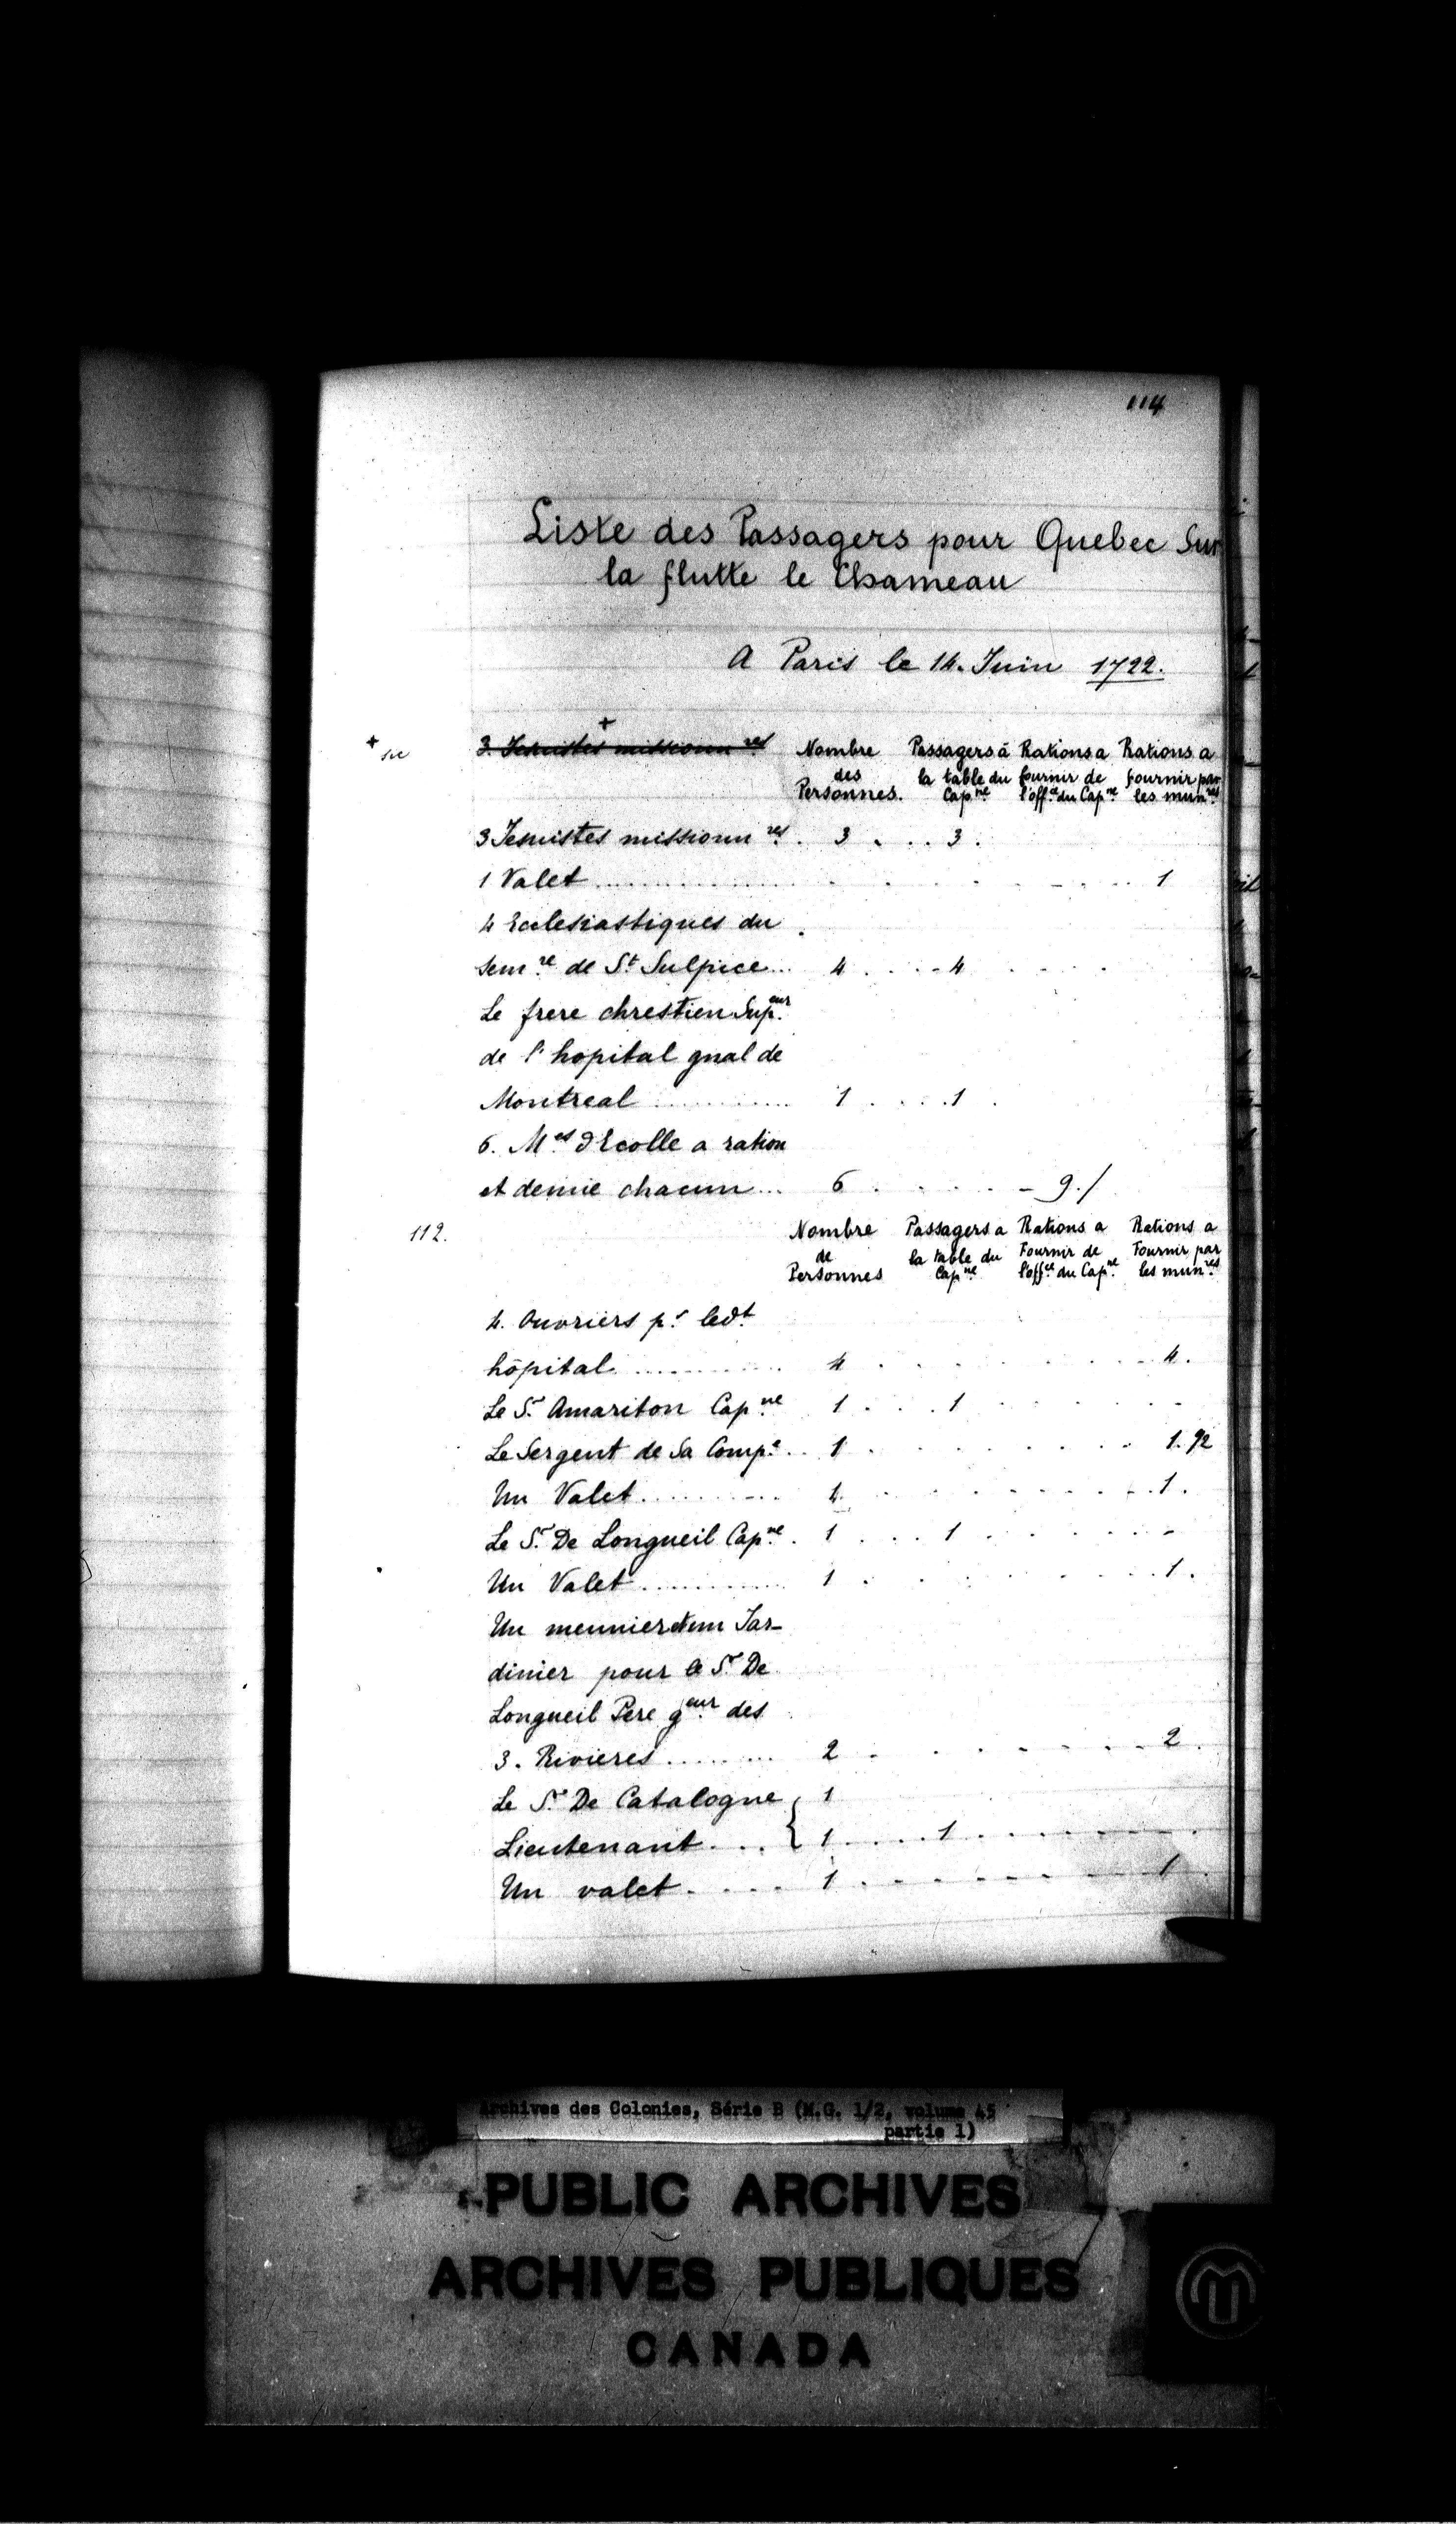 114
Liste des Passagers pour Quebec Sur
la flutte le Chameau
A Paris le 14. Juin 1722.
+ sic
3. Jesuistes missionn.res + Nombre des Personnes. Passagers à la table du Cap.ne Rations a fournir de l'off.ce du Cap.ne Rations a fournir par les mun.res
3 Jesuistes missionn.res . 3 . . . 3 .
1 Valet . . . . . 1
4 Ecclesiastiques du
sem.re de St Sulpice... 4 . . . 4 . . .
Le frere chrestien Sup.eur
de l'hopital gnal de
Montreal ........ 1 . . . . 1 .
6. M.es d'Ecolle a ration
et demie chacun... 6 . . . . – 9./
112. Nombre de Personnes Passagers a la table du Cap.ne Rations a Fournir de l'off.ce du Cap.ne Rations a Fournir par les mun.res
4. Ouvriers p.r ledt
hôpital ........ 4 . . . . . 4.
Le S.r Amariton Cap.ne 1 . . . 1 . . . .
Le Sergent de Sa Comp.e .. 1 . . . . . 1. 1/2
Un Valet ........ 1. . . . . . 1 .
Le S.r De Longueil Cap.ne . 1 . . . 1 . . . . -
Un Valet ........ 1 . . . . . 1 .
Un meunier et un Jar-
dinier pour le S.r De
Longueil Pere g.eur des
3. Rivieres ........ 2 . . . . . 2 .
Le S.r De Catalogne { 1
Lieutenant . . . { 1 . . . . 1 . . . .
Un valet . . . . 1 . . . . . 1 .
Archives des Colonies, Série B (M.G. 1/2, volume 45
partie 1)
PUBLIC ARCHIVES
ARCHIVES PUBLIQUES
CANADA